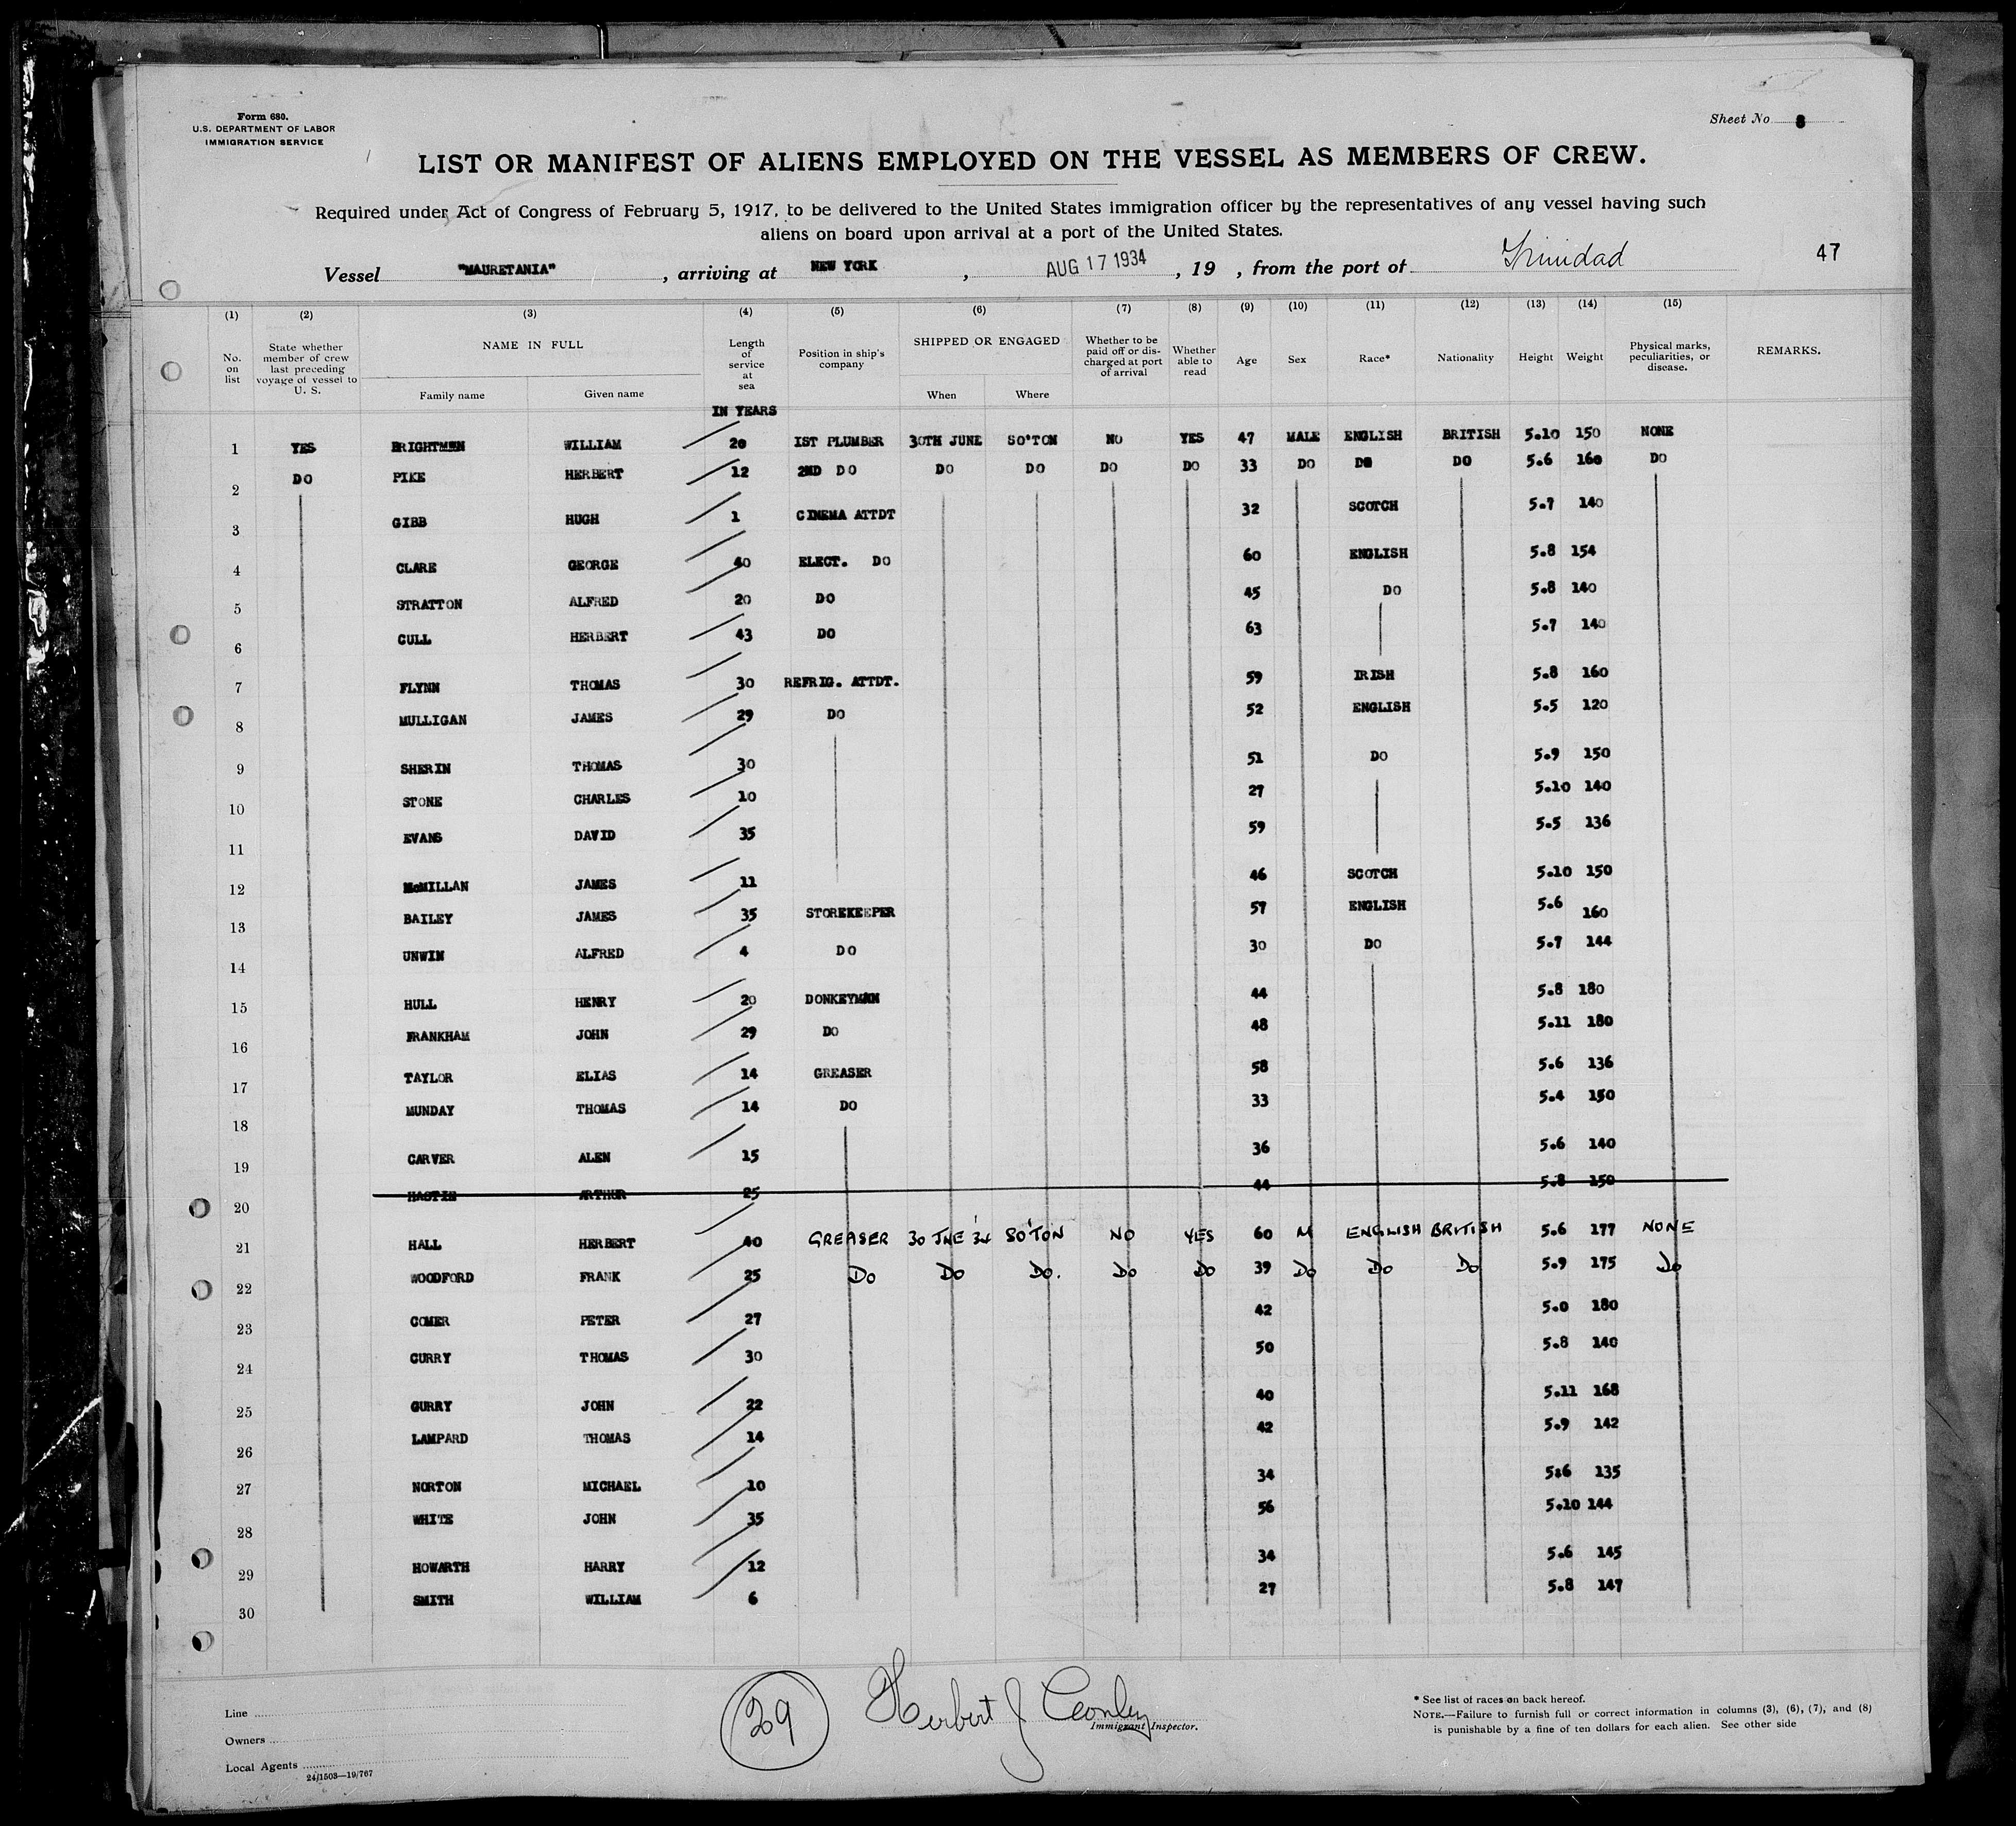 Form 680.
U.S. DEPARTMENT OF LABOR
IMMIGRATION SERVICE
Sheet No 8
LIST OR MANIFEST OF ALIENS EMPLOYED ON THE VESSEL AS MEMBERS OF CREW.
Required under Act of Congress of February 5, 1917, to be delivered to the United States immigration officer by the representatives of any vessel having such
aliens on board upon arrival at a port of the United States.
47
Vessel "MAURETANIA", arriving at NEW YORK, AUG 17 1934, 19 , from the port of Trinidad
(1) (2) (3) (4) (5) (6) (7) (8) (9) (10) (11) (12) (13) (14) (15)
No. on list
State whether member of crew last preceding voyage of vessel to U. S.
NAME IN FULL
Family name Given name
Length of service at sea
Position in ship's company
SHIPPED OR ENGAGED
When Where
Whether to be paid off or discharged at port of arrival
Whether able to read
Age Sex Race* Nationality Height Weight
Physical marks, peculiarities, or disease.
REMARKS.
IN YEARS
1 YES BRIGHTMEN WILLIAM 20 1ST PLUMBER 30TH JUNE SO'TON NO YES 47 MALE ENGLISH BRITISH 5.10 150 NONE
2 DO PIKE HERBERT 12 2ND DO DO DO DO DO 33 DO DO DO 5.6 160 DO
3 GIBB HUGH 1 CINEMA ATTDT 32 SCOTCH 5.7 140
4 CLARE GEORGE 40 ELECT. DO 60 ENGLISH 5.8 154
5 STRATTON ALFRED 20 DO 45 DO 5.8 140
6 GULL HERBERT 43 DO 63 5.7 140
7 FLYNN THOMAS 30 REFRIG. ATTDT. 59 IRISH 5.8 160
8 MULLIGAN JAMES 29 DO 52 ENGLISH 5.5 120
9 SHERIN THOMAS 30 51 DO 5.9 150
10 STONE CHARLES 10 27 5.10 140
11 EVANS DAVID 35 59 5.5 136
12 McMILLAN JAMES 11 46 SCOTCH 5.10 150
13 BAILEY JAMES 35 STOREKEEPER 57 ENGLISH 5.6 160
14 UNWIN ALFRED 4 DO 30 DO 5.7 144
15 HULL HENRY 20 DONKEYMAN 44 5.8 180
16 FRANKHAM JOHN 29 DO 48 5.11 180
17 TAYLOR ELIAS 14 GREASER 58 5.6 136
18 MUNDAY THOMAS 14 DO 33 5.4 150
19 CARVER ALEN 15 36 5.6 140
20 HASTIE ARTHUR 25 44 5.8 150
21 HALL HERBERT 40 GREASER 30 JNE '34 SO'TON NO YES 60 M ENGLISH BRITISH 5.6 177 NONE
22 WOODFORD FRANK 25 DO DO DO. DO DO 39 DO DO DO 5.9 175 DO
23 COMER PETER 27 42 5.0 180
24 CURRY THOMAS 30 50 5.8 140
25 GURRY JOHN 22 40 5.11 168
26 LAMPARD THOMAS 14 42 5.9 142
27 NORTON MICHAEL 10 34 5:6 135
28 WHITE JOHN 35 56 5.10 144
29 HOWARTH HARRY 12 34 5.6 145
30 SMITH WILLIAM 6 27 5.8 147
Line
Owners
Local Agents
24/1503—19/767
29
Herbert J Conley
Immigrant Inspector.
* See list of races on back hereof.
NOTE.—Failure to furnish full or correct information in columns (3), (6), (7), and (8)
is punishable by a fine of ten dollars for each alien. See other side